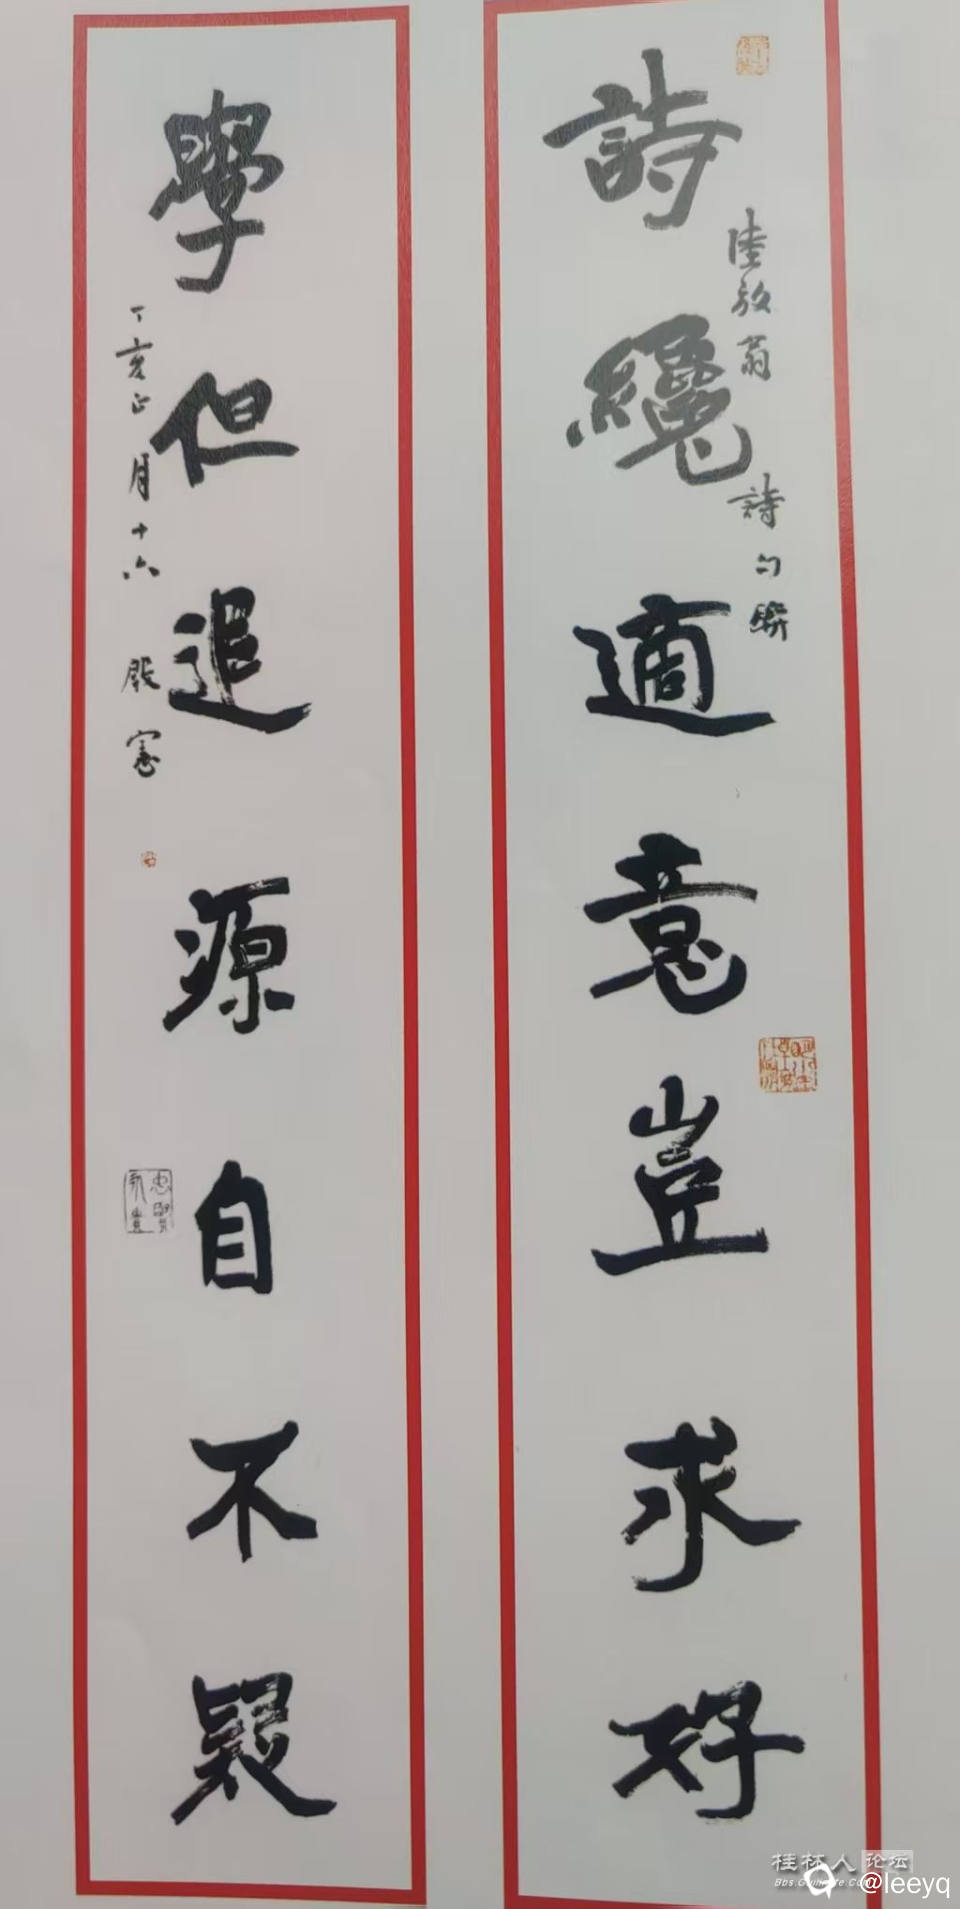 詩纔適意豈求好
陸放翁詩句聯
學但追源自不疑
丁亥正月十六 殷憲
桂林人论坛
@leeyq